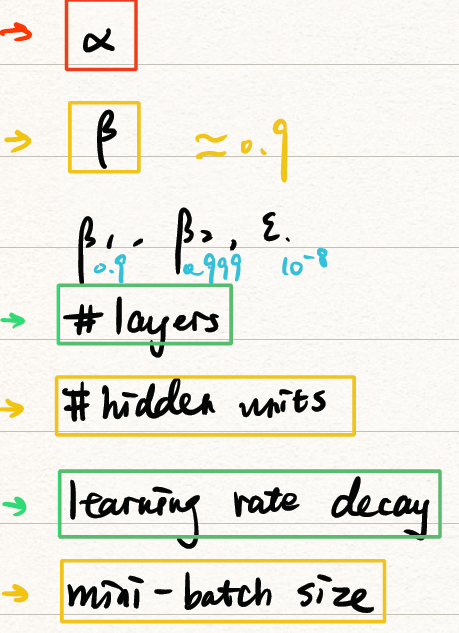 → α
→ β ≈ 0.9
β₁, β₂, ε.
0.9 0.999 10⁻⁸
→ # layers
→ # hidden units
→ learning rate decay
→ mini-batch size